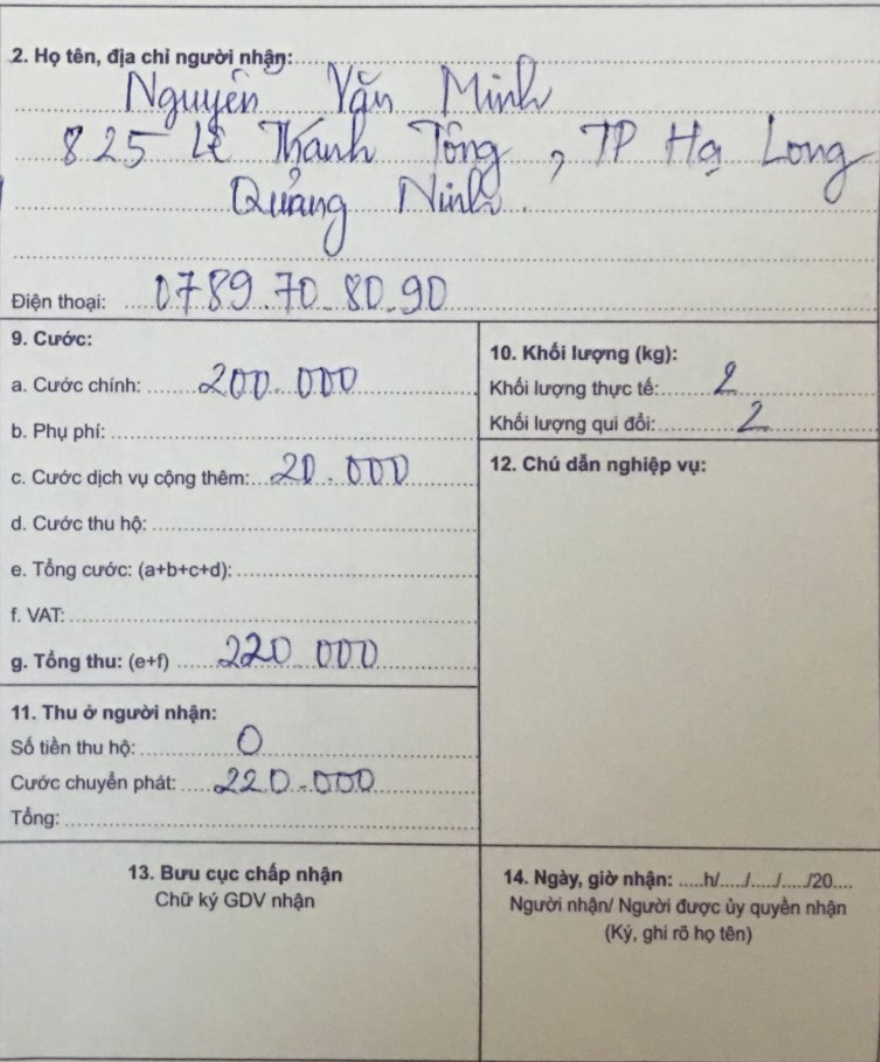 2. Họ tên, địa chỉ người nhận:
Nguyễn Văn Minh
825 Lê Thánh Tông, TP Hạ Long
Quảng Ninh.
Điện thoại: 0789.70.80.90
9. Cước:
a. Cước chính: 200.000
b. Phụ phí:
c. Cước dịch vụ cộng thêm: 20.000
d. Cước thu hộ:
e. Tổng cước: (a+b+c+d):
f. VAT:
g. Tổng thu: (e+f) 220.000
10. Khối lượng (kg):
Khối lượng thực tế: 2
Khối lượng qui đổi: 2
11. Thu ở người nhận:
Số tiền thu hộ: 0
Cước chuyển phát: 220.000
Tổng:
12. Chú dẫn nghiệp vụ:
13. Bưu cục chấp nhận
Chữ ký GDV nhận
14. Ngày, giờ nhận: .....h/...../...../...../20....
Người nhận/ Người được ủy quyền nhận
(Ký, ghi rõ họ tên)